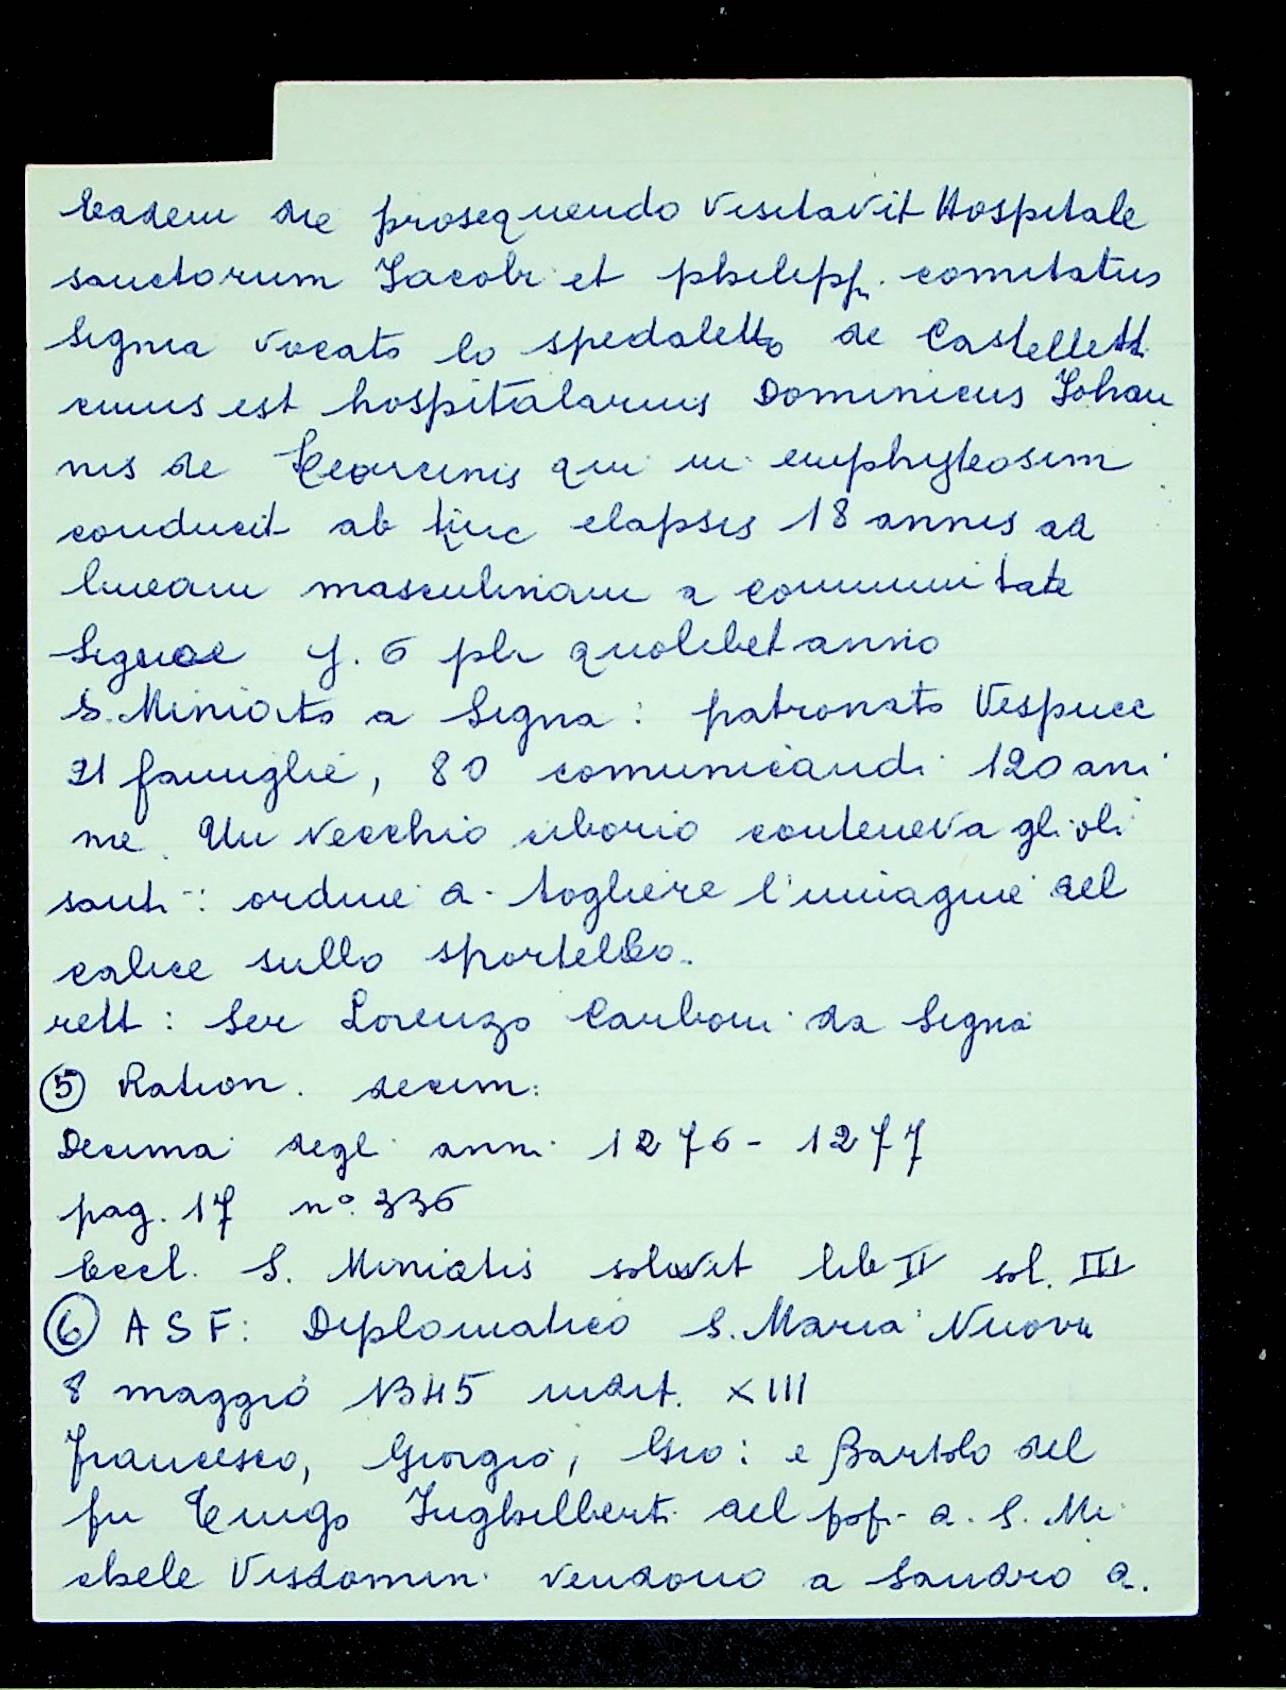 Eadem die prosequendo visitavit Hospitale
sanctorum Jacobi et philippi comitatus
Signa vocato lo spedaletto de Castellett.
cuius est hospitalarius Dominicus Johan
nis de qui in emphyteosim
conducit ab hinc elapsis 18 annis ad
lineam masculinam a communitate
Signae f. 6 pli quolibet anno
S. Miniato a Signa: patronato Vespucc
21 famiglie, 80 comunicandi 120 ani
me. Un vecchio ciborio conteneva gli oli
santi: ordine di togliere l'imagine del
calice sullo sportello.
rett: Ser Lorenzo Carboni da Signa
⑤ Ration. decim:
Decima degli anni 1276 - 1277
pag. 17 n° 336
Eccl. S. Miniatis solvit lib II sol. III
⑥ ASF: Diplomatico S. Maria Nuova
8 maggio 1345 indit. XIII
Francesco, Giorgio, Gio: e Bartolo del
fu Inghilberti del pop. di S. Mi
chele Visdomini vendono a Sandro di